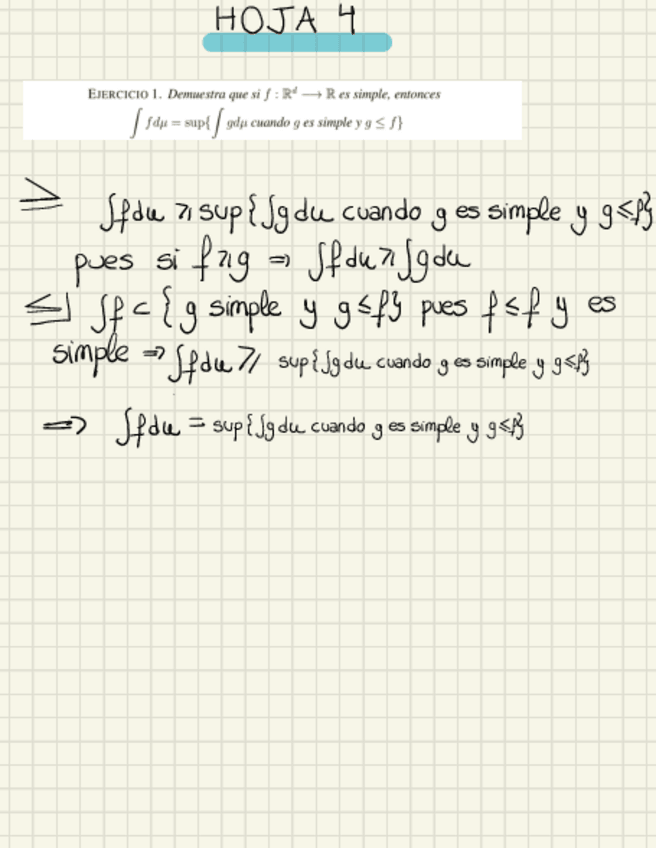 HOJA 4
EJERCICIO 1. Demuestra que si f : ℝᵈ ⟶ ℝ es simple, entonces
∫ fdμ = sup{∫ gdμ cuando g es simple y g ≤ f}
≥ ∫fdu ≥ sup{∫gdu cuando g es simple y g≤f}
pues si f≥g ⇒ ∫fdu≥∫gdu
≤| ∫f ⊂ {g simple y g≤f} pues f≤f y es
simple ⇒ ∫fdu ≥ sup{∫gdu cuando g es simple y g≤f}
⇒ ∫fdu = sup{∫gdu cuando g es simple y g≤f}